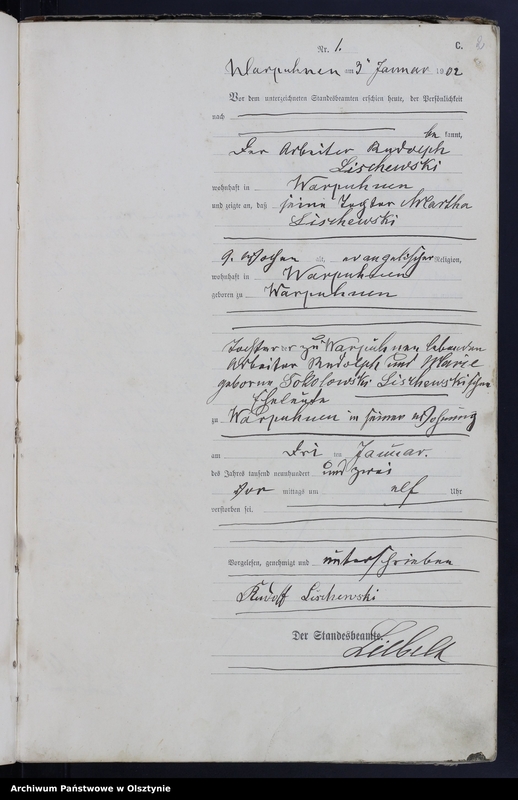 Nr. 1. C.
Warpuhnen am 3ⁿ Januar 1902
Vor dem unterzeichneten Standesbeamten erschien heute, der Persönlichkeit
nach
be kannt,
Der Arbeiter Rudolph
Lischewski
wohnhaft in Warpuhnen
und zeigte an, daß seine Togter Martha
Lischewski
9. Wochen alt, evangelischer Religion,
wohnhaft in Warpuhnen
geboren zu Warpuhnen
Tochter der zu Warpuhnen lebenden
Arbeiter Rudolph und Marie
geborne Sokolowski Lischewskischen
Eheleute
zu Warpuhnen in seiner Wohnung
am Dri ten Januar.
des Jahres tausend neunhundert und zwei
Vor mittags um elf Uhr
verstorben sei.
Vorgelesen, genehmigt und unterschrieben
Rudolf Lischewski
Der Standesbeamte.
Archiwum Państwowe w Olsztynie